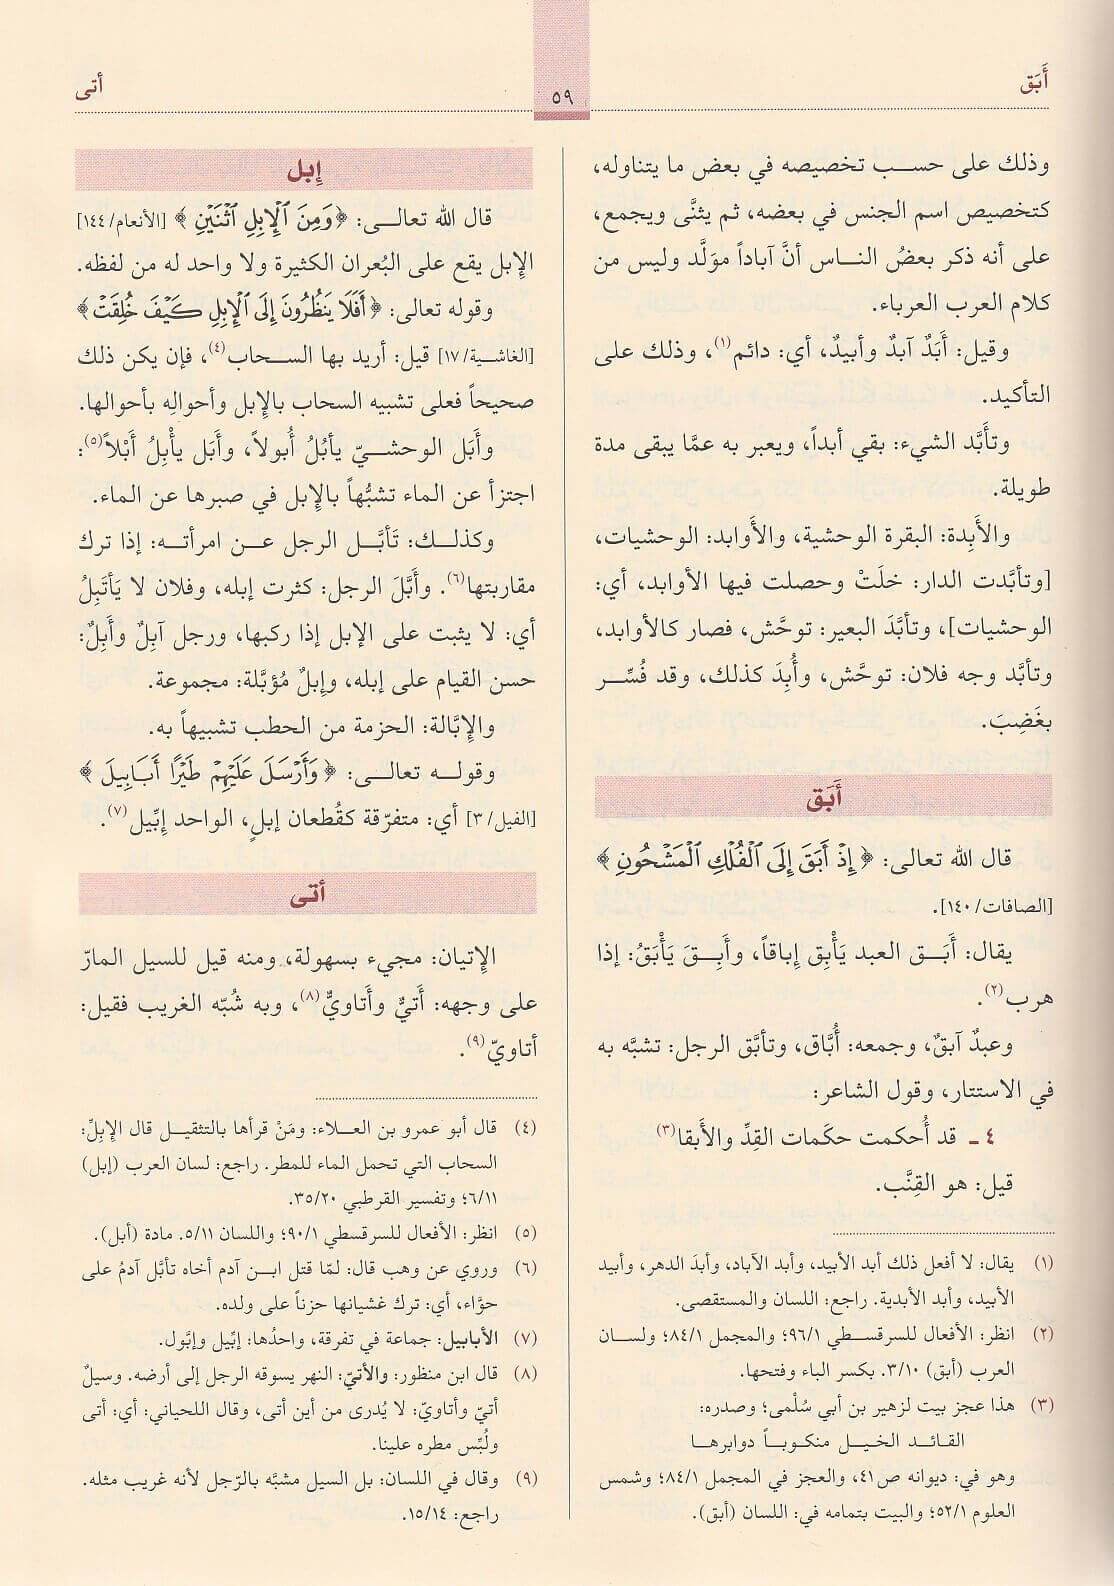 أَبَق
٥٩
أتى
وذلك على حسب تخصيصه في بعض ما يتناوله،
كتخصيص اسم الجنس في بعضه، ثم يثنَّى ويجمع،
على أنه ذكر بعضُ الناس أنَّ آباداً مولَّد وليس من
كلام العرب العرباء.
وقيل: أَبَدٌ آبدٌ وأبيدٌ، أي: دائم(١)، وذلك على
التأكيد.
وتأَبَّد الشيء: بقي أبداً، ويعبر به عمَّا يبقى مدة
طويلة.
والأَبِدة: البقرة الوحشية، والأَوابد: الوحشيات،
[وتأبَّدت الدار: خلَتْ وحصلت فيها الأوابد، أي:
الوحشيات]، وتأبَّدَ البعير: توحَّش، فصار كالأوابد،
وتأبَّد وجه فلان: توحَّش، وأُبِدَ كذلك، وقد فُسِّر
بغَضِبَ.
أَبَق
قال الله تعالى: ﴿إِذْ أَبَقَ إِلَى الْفُلْكِ الْمَشْحُونِ﴾
[الصافات/١٤٠].
يقال: أَبَق العبد يَأْبِق إباقاً، وأَبِقَ يَأْبَقُ: إذا
هرب(٢).
وعبدٌ آبقٌ، وجمعه: أُبَّاق، وتأبَّق الرجل: تشبَّه به
في الاستتار، وقول الشاعر:
٤ ـ قد أُحكمت حكَمات القِدِّ والأَبقا(٣)
قيل: هو القِنَّب.
(١) يقال: لا أفعل ذلك أبد الأبيد، وأبد الآباد، وأبدَ الدهر، وأبيد
الأبيد، وأبد الأبدية. راجع: اللسان والمستقصى.
(٢) انظر: الأفعال للسرقسطي ٩٦/١؛ والمجمل ٨٤/١؛ ولسان
العرب (أبق) ٣/١٠. بكسر الباء وفتحها.
(٣) هذا عجز بيت لزهير بن أبي سُلْمى؛ وصدره:
القائد الخيل منكوباً دوابرها
وهو في: ديوانه ص٤١، والعجز في المجمل ٨٤/١؛ وشمس
العلوم ٥٢/١؛ والبيت بتمامه في: اللسان (أبق).
إِبل
قال الله تعالى: ﴿وَمِنَ الْإِبِلِ اثْنَيْنِ﴾ [الأنعام/١٤٤]
الإِبل يقع على البُعران الكثيرة ولا واحد له من لفظه.
وقوله تعالى: ﴿أَفَلَا يَنظُرُونَ إِلَى الْإِبِلِ كَيْفَ خُلِقَتْ﴾
[الغاشية/١٧] قيل: أريد بها السحاب(٤)، فإن يكن ذلك
صحيحاً فعلى تشبيه السحاب بالإِبل وأحواله بأحوالها.
وأَبَل الوحشيّ يأبُلُ أُبولاً، وأَبَل يأْبِلُ أَبْلاً(٥):
اجتزأ عن الماء تشبُّهاً بالإِبل في صبرها عن الماء.
وكذلك: تَأبَّل الرجل عن امرأته: إذا ترك
مقاربتها(٦). وأَبَّلَ الرجل: كثرت إبله، وفلان لا يَأتَبِلُ
أي: لا يثبت على الإبل إذا ركبها، ورجل آبِلٌ وأَبِلٌ:
حسن القيام على إبله، وإِبلٌ مُؤبَّلة: مجموعة.
والإِبَّالة: الحزمة من الحطب تشبيهاً به.
وقوله تعالى: ﴿وَأَرْسَلَ عَلَيْهِمْ طَيْرًا أَبَابِيلَ﴾
[الفيل/٣] أي: متفرّقة كقُطعان إبلٍ، الواحد إبِّيل(٧).
أتى
الإِتيان: مجيء بسهولة، ومنه قيل للسيل المارّ
على وجهه: أَتيٌّ وأَتاويٌّ(٨)، وبه شُبِّه الغريب فقيل:
أتاويّ(٩).
(٤) قال أبو عمرو بن العلاء: ومَنْ قرأها بالتثقيل قال الإِبِلّ:
السحاب التي تحمل الماء للمطر. راجع: لسان العرب (إبل)
٦/١١؛ وتفسير القرطبي ٣٥/٢٠.
(٥) انظر: الأفعال للسرقسطي ٩٠/١؛ واللسان ٥/١١. مادة (أبل).
(٦) وروي عن وهب قال: لمّا قتل ابن آدم أخاه تأبَّل آدمُ على
حوَّاء، أي: ترك غشيانها حزناً على ولده.
(٧) الأبابيل: جماعة في تفرقة، واحدُها: إبِّيل وإبَّول.
(٨) قال ابن منظور: والأتيّ: النهر يسوقه الرجل إلى أرضه. وسيلٌ
أتيّ وأتاويّ: لا يُدرى من أين أتى، وقال اللحياني: أي: أتى
ولُبِّس مطره علينا.
(٩) وقال في اللسان: بل السيل مشبَّه بالرّجل لأنه غريب مثله.
راجع: ١٥/١٤.